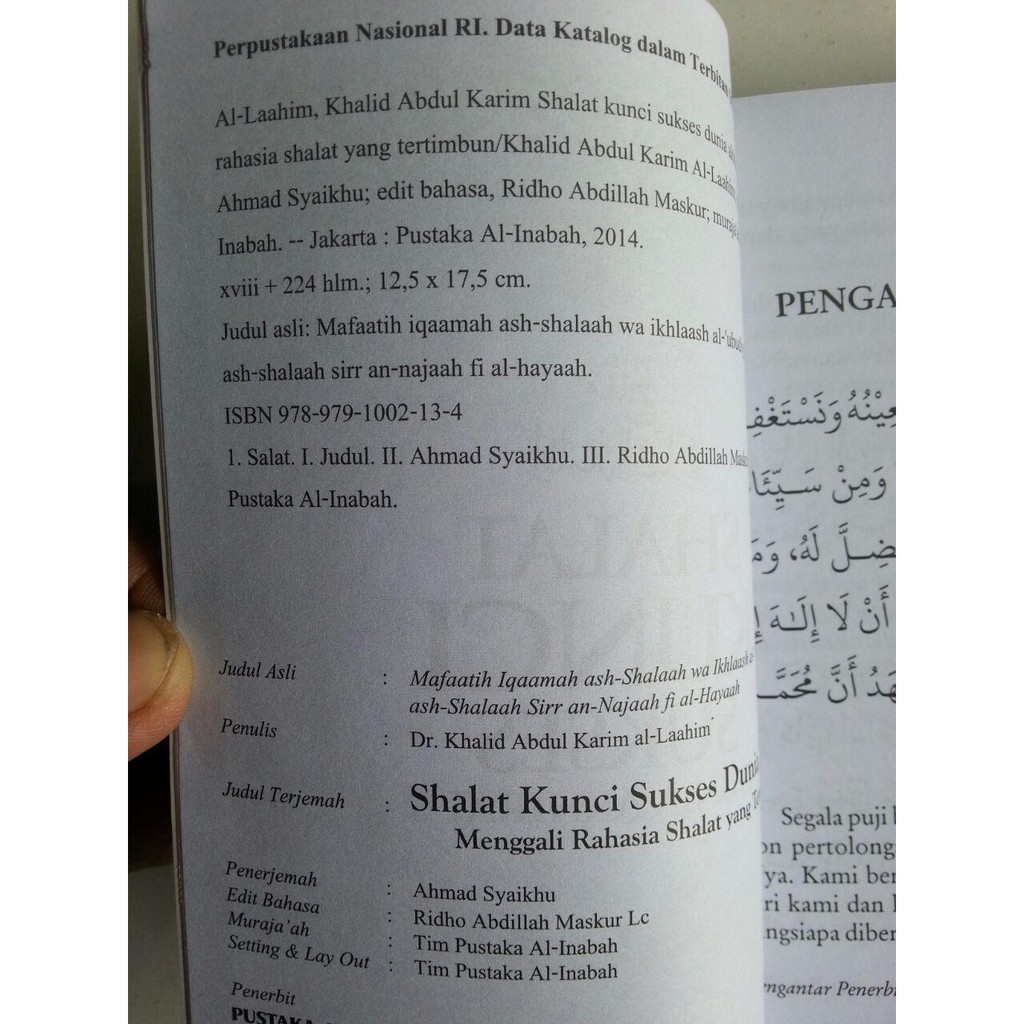 Perpustakaan Nasional RI. Data Katalog dalam Terbitan
Al-Laahim, Khalid Abdul Karim Shalat kunci sukses dunia
rahasia shalat yang tertimbun/Khalid Abdul Karim Al-Laahim
Ahmad Syaikhu; edit bahasa, Ridho Abdillah Maskur;
Inabah. -- Jakarta : Pustaka Al-Inabah, 2014.
xviii + 224 hlm.; 12,5 x 17,5 cm.
Judul asli: Mafaatih iqaamah ash-shalaah wa ikhlaash
ash-shalaah sirr an-najaah fi al-hayaah.
ISBN 978-979-1002-13-4
1. Salat. I. Judul. II. Ahmad Syaikhu. III. Ridho Abdillah
Pustaka Al-Inabah.
Judul Asli : Mafaatih Iqaamah ash-Shalaah wa Ikhlaash
ash-Shalaah Sirr an-Najaah fi al-Hayaah
Penulis : Dr. Khalid Abdul Karim al-Laahim
Judul Terjemah : Shalat Kunci Sukses Dunia
Menggali Rahasia Shalat yang
Penerjemah : Ahmad Syaikhu
Edit Bahasa : Ridho Abdillah Maskur Lc
Muraja'ah : Tim Pustaka Al-Inabah
Setting & Lay Out : Tim Pustaka Al-Inabah
Penerbit
PUSTAKA
PENGA
وَنَسْتَغْفِ
وَمِنْ سَيِّئَا
لَهُ، وَمَ
أَنْ لَا إِلَـٰهَ
أَنَّ مُحَمَّـ
Segala puji
on pertolong
ya. Kami ber
ri kami dan
ngsiapa diber
ngantar Penerb